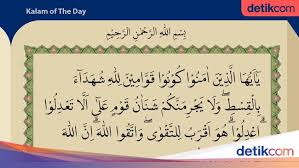 Kalam of The Day
detikcom
بِسْمِ اللّٰهِ الرَّحْمٰنِ الرَّحِيْمِ
يٰٓاَيُّهَا الَّذِيْنَ اٰمَنُوْا كُوْنُوْا قَوَّامِيْنَ لِلّٰهِ شُهَدَاۤءَ
بِالْقِسْطِۖ وَلَا يَجْرِمَنَّكُمْ شَنَاٰنُ قَوْمٍ عَلٰٓى اَلَّا تَعْدِلُوْا
اِعْدِلُوْاۗ هُوَ اَقْرَبُ لِلتَّقْوٰىۖ وَاتَّقُوا اللّٰهَ ۗاِنَّ اللّٰهَ
detikcom